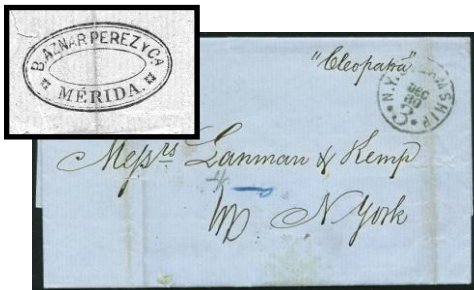 B. AZNAR PEREZ Y Ca
MÉRIDA.
"Cleopatra"
N.Y. STEAMSHIP
DEC
30
Messrs Lanman & Kemp
N York